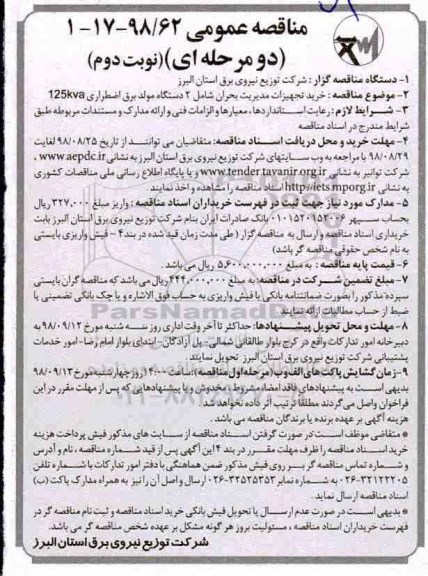 مناقصه عمومی ۹۸/۶۲-۱۷-۱
(دو مرحله ای)(نوبت دوم)
۱- دستگاه مناقصه گزار : شرکت توزیع نیروی برق استان البرز
۲- موضوع مناقصه : خرید تجهیزات مدیریت بحران شامل ۲ دستگاه مولد برق اضطراری 125kva
۳- شرایط لازم : رعایت استانداردها ، معیارها و الزامات فنی و ارائه مدارک و مستندات مربوطه طبق
شرایط مندرج در اسناد مناقصه
۴- مهلت خرید و محل دریافت اسناد مناقصه: متقاضیان می توانند از تاریخ ۹۸/۰۸/۲۵ لغایت
۹۸/۰۸/۲۹ با مراجعه به وب سایتهای شرکت توزیع نیروی برق استان البرز به نشانی www.aepdc.ir ،
شرکت توانیر به نشانی www.tender.tavanir.org.ir و یا پایگاه اطلاع رسانی ملی مناقصات کشوری
به نشانی http://iets.mporg.ir اسناد مناقصه را مشاهده و اخذ نمایند .
۵- مدارک مورد نیاز جهت ثبت در فهرست خریداران اسناد مناقصه : واریز مبلغ ۳۲۷,۰۰۰ ریال به
حساب سپهر ۰۱۰۱۵۲۰۱۵۲۰۰۶ بانک صادرات ایران بنام شرکت توزیع نیروی برق استان البرز بابت
خریداری اسناد مناقصه و ارسال به مناقصه گزار ( طی مدت زمان قید شده در بند۴ - فیش واریزی بایستی
به نام شخص حقوقی مناقصه گر باشد)
۶- قیمت پایه مناقصه : به مبلغ ۵,۶۰۰,۰۰۰,۰۰۰ ریال می باشد .
۷- مبلغ تضمین شرکت در مناقصه: به مبلغ ۴۴۴,۰۰۰,۰۰۰ ریال می باشد که مناقصه گران بایستی
سپرده مذکور را بصورت ضمانتنامه بانکی یا فیش واریزی به حساب فوق الاشاره و یا چک بانکی تضمینی یا
ضبط از حساب مطالبات ارائه نمایند
۸- مهلت و محل تحویل پیشنهادها: حداکثر تا آخر وقت اداری روز سه شنبه مورخ ۹۸/۰۹/۱۲ به
دبیرخانه امور تدارکات واقع در کرج بلوار طالقانی شمالی- پل آزادگان- ابتدای بلوار امام رضا- امور خدمات
پشتیبانی شرکت توزیع نیروی برق استان البرز تحویل نمایند .
۹- زمان گشایش پاکت های الف و ب (مرحله اول مناقصه): ساعت ۱۴:۰۰ روز چهارشنبه مورخ ۹۸/۰۹/۱۳
بدیهی است به پیشنهادهای فاقد امضاء، مشروط ، مخدوش و یا پیشنهادهایی که پس از مهلت مقرر در این
فراخوان واصل می گردند مطلقاً ترتیب اثر داده نخواهد شد .
هزینه آگهی بر عهده برنده یا برندگان مناقصه می باشد .
* متقاضی موظف است در صورت گرفتن اسناد مناقصه از سایت های مذکور فیش پرداخت هزینه
خرید اسناد مناقصه را ظرف مهلت مقرر در بند ۴ این آگهی پس از قید شماره مناقصه ، نام و آدرس
و شماره تماس مناقصه گر بر روی فیش مذکور ضمن هماهنگی با دفتر امور تدارکات با شماره تلفن
۳۲۱۲۲۲۰۵-۰۲۶ به شماره نمابر ۳۲۵۲۵۳۵۳-۰۲۶ ارسال و اصل آن را نیز به همراه مدارک پاکت (ب)
اسناد مناقصه ارسال نماید .
* بدیهی است در صورت عدم ارسال یا تحویل فیش بانکی خرید اسناد مناقصه و ثبت نام مناقصه گر در
فهرست خریداران اسناد مناقصه ، مسئولیت بروز هر گونه مشکل بر عهده شخص مناقصه گر می باشد .
شرکت توزیع نیروی برق استان البرز